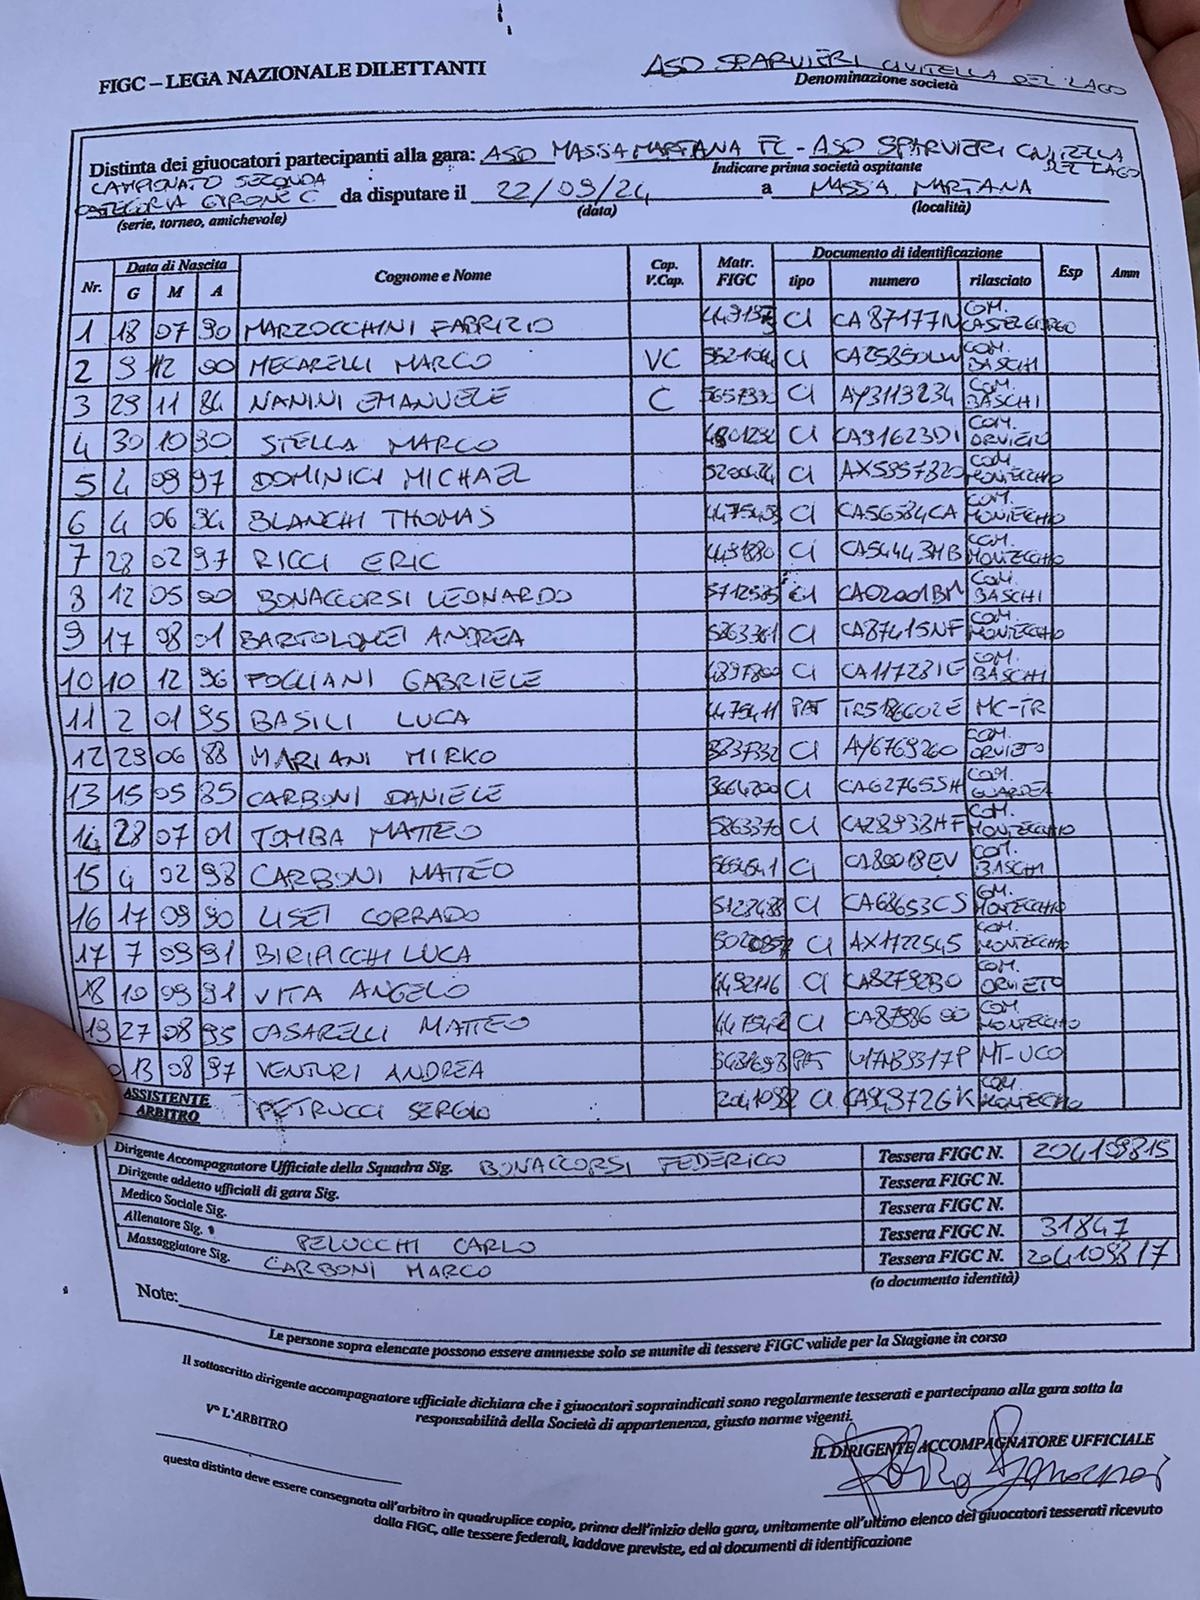 FIGC – LEGA NAZIONALE DILETTANTI
ASD SPARVIERI CIVITELLA DEL LAGO
Denominazione società
Distinta dei giuocatori partecipanti alla gara: ASD MASSA MARTANA FC - ASD SPARVIERI CIVITELLA DEL LAGO
Indicare prima società ospitante
CAMPIONATO SECONDA
CATEGORIA GIRONE C da disputare il 22/09/24 a MASSA MARTANA
(serie, torneo, amichevole) (data) (località)
Nr. Data di Nascita Cognome e Nome Cap. V.Cap. Matr. FIGC Documento di identificazione Esp Amm
G M A tipo numero rilasciato
1 18 07 90 MARZOCCHINI FABRIZIO CI CA87177N COM. CASTELGIORGIO
2 9 12 90 MECARELLI MARCO VC CI COM. BASCHI
3 29 11 84 NANINI EMANUELE C CI AY3113234 COM. BASCHI
4 30 10 90 STELLA MARCO CI CA91623DI COM. ORVIETO
5 4 09 97 DOMINICI MICHAEL CI COM. MONTECCHIO
6 4 06 94 BLANCHI THOMAS 4475453 CI CA56584CA COM. MONTECCHIO
7 28 02 97 RICCI ERIC CI CA54443HB COM. MONTECCHIO
8 12 05 00 BONACCORSI LEONARDO CI COM. BASCHI
9 17 08 01 BARTOLOMEI ANDREA 5863361 CI CA87415NF COM. MONTECCHIO
10 10 12 96 FOGLIANI GABRIELE CI COM. BASCHI
11 2 01 95 BASILI LUCA 4475411 PAT MC-TR
12 29 06 88 MARIANI MIRKO CI AY6769260 COM. ORVIETO
13 15 05 85 CARBONI DANIELE CI CA62765SH COM. GUARDEA
14 28 07 01 TOMBA MATTEO 5863370 CI CA28938HF COM. MONTECCHIO
15 4 02 98 CARBONI MATTEO CI COM. BASCHI
16 17 09 90 LISEI CORRADO CI CA68653CS COM. MONTECCHIO
17 7 09 91 BIRIACCHI LUCA CI AX1722545 COM. MONTECCHIO
18 10 09 91 VITA ANGELO 4492116 CI COM. ORVIETO
19 27 08 95 CASARELLI MATTEO CI COM. MONTECCHIO
13 08 97 VENTURI ANDREA PAT MT-UCO
ASSISTENTE ARBITRO PETRUCCI SERGIO CI CA94972GK COM. MONTECCHIO
Dirigente Accompagnatore Ufficiale della Squadra Sig. BONACCORSI FEDERICO Tessera FIGC N. 204109815
Dirigente addetto ufficiali di gara Sig. Tessera FIGC N.
Medico Sociale Sig. Tessera FIGC N.
Allenatore Sig. PELUCCHI CARLO Tessera FIGC N. 31847
Massaggiatore Sig. CARBONI MARCO Tessera FIGC N. 204109817
(o documento identità)
Note:
Le persone sopra elencate possono essere ammesse solo se munite di tessere FIGC valide per la Stagione in corso
Il sottoscritto dirigente accompagnatore ufficiale dichiara che i giuocatori sopraindicati sono regolarmente tesserati e partecipano alla gara sotto la
responsabilità della Società di appartenenza, giusto norme vigenti.
V° L'ARBITRO
IL DIRIGENTE ACCOMPAGNATORE UFFICIALE
questa distinta deve essere consegnata all'arbitro in quadruplice copia, prima dell'inizio della gara, unitamente all'ultimo elenco dei giuocatori tesserati ricevuto
dalla FIGC, alle tessere federali, laddove previste, ed ai documenti di identificazione